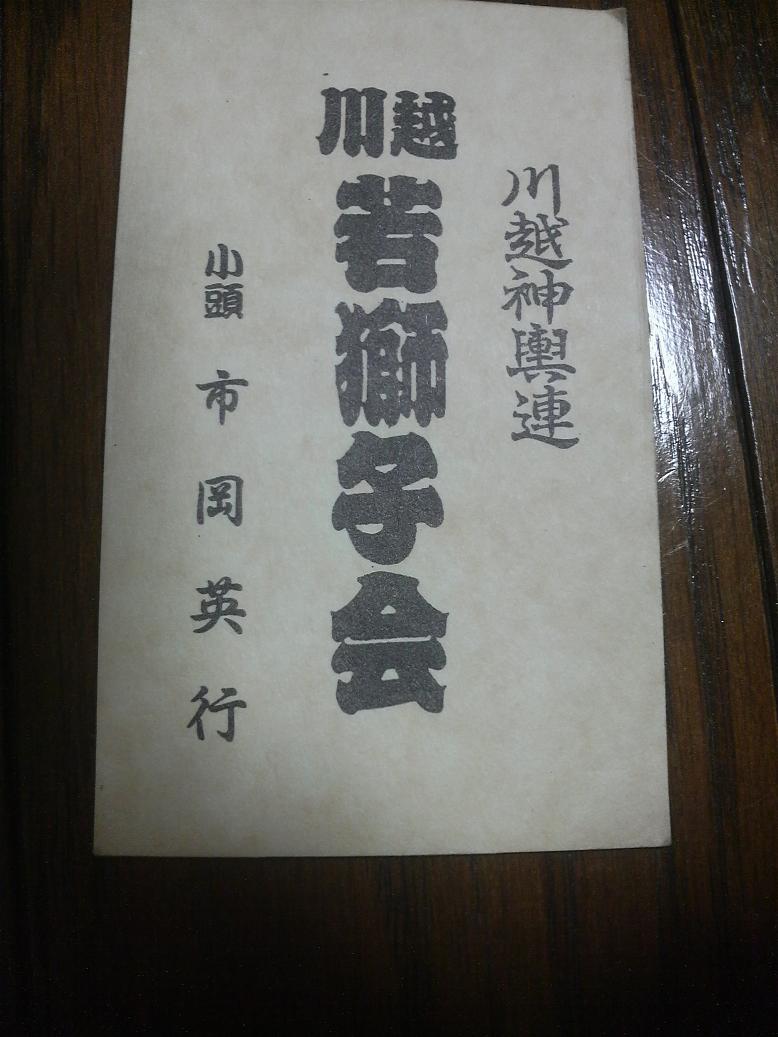 川越神輿連
川越
若獅子会
小頭 市岡英行